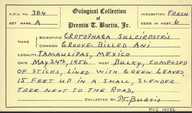 A.O.U. NO. 384
Oological Collection
of
Prentis T. Burtis, Jr.
INCUBATION FRESH
SET MARK A
EGGS IN SET 6
SCIENTIFIC NAME Crotophaga Sulcirostris
COMMON NAME Groove-Billed Ani
LOCALITY Tamaulipas, Mexico
DATE May 24th, 1956. NEST Bulky, composed
of sticks, lined with green leaves,
15 feet up in a small, slender
tree next to the road.
COLLECTED BY P.T. Burtis